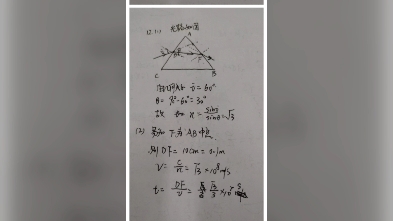 12.(1) 光路如图
A
C B
由几何知 i=60°
θ=90°-60°=30°
故 n=sin i/sinθ=√3
(2) 易知 F为AB中点
则 DF=10cm=0.1m
v=c/n=√3×10⁸m/s
t=DF/v=